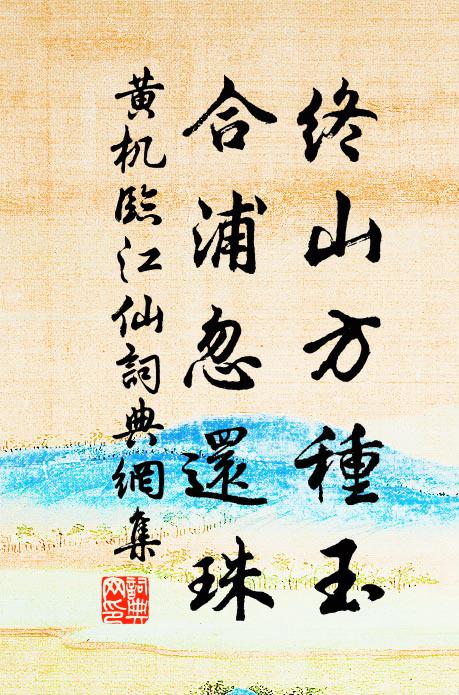 终山方種玉
合浦忽還珠
黄机臨江仙詞典網集